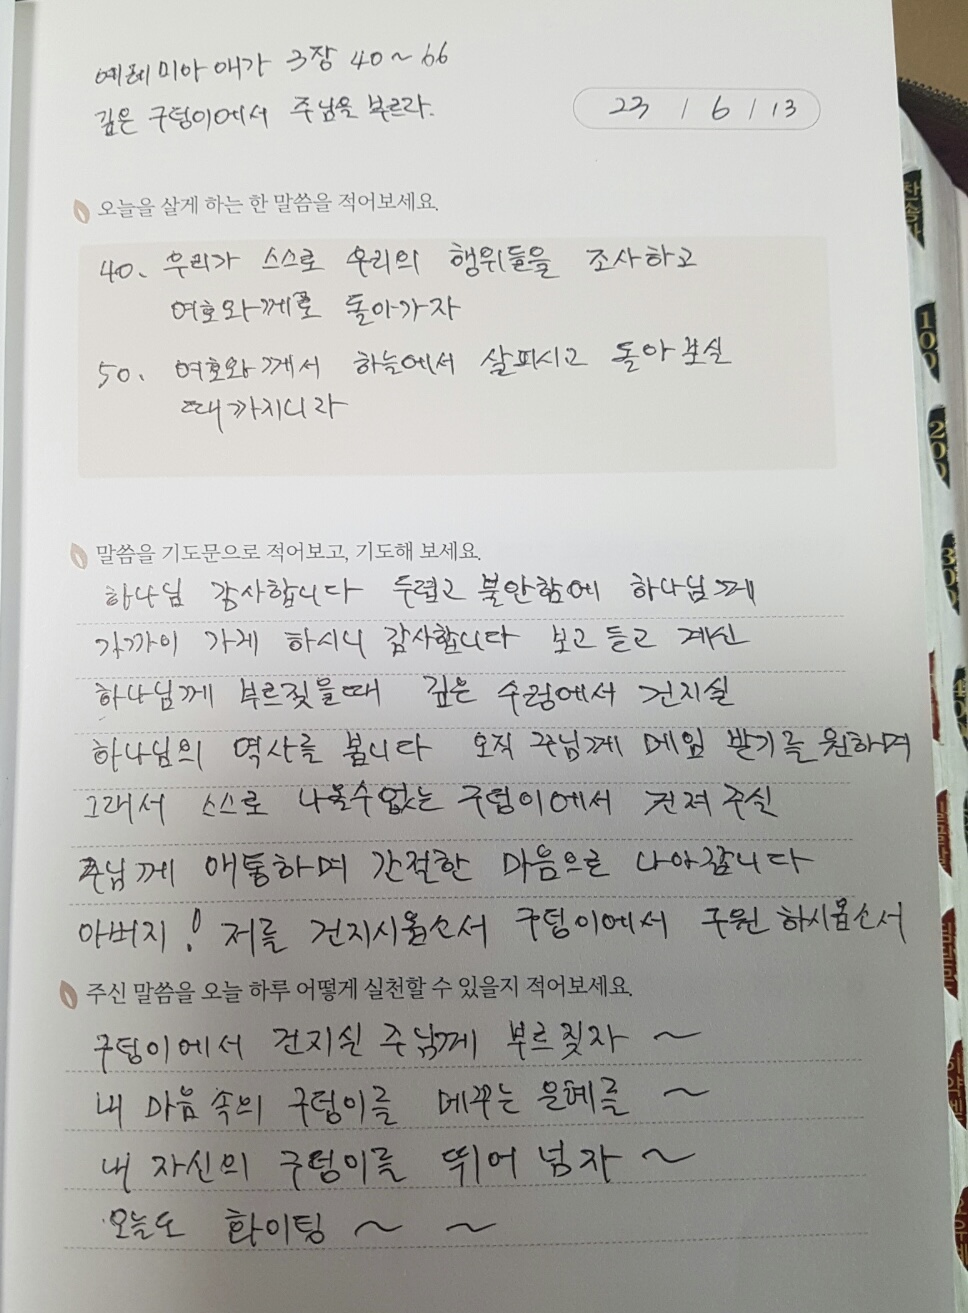 예레미아 애가 3장 40~66
깊은 구덩이에서 주님을 부르라.
23 / 6 / 13
오늘을 살게 하는 한 말씀을 적어보세요.
40. 우리가 스스로 우리의 행위들을 조사하고
여호와께로 돌아가자
50. 여호와께서 하늘에서 살피시고 돌아보실
때까지니라
말씀을 기도문으로 적어보고, 기도해 보세요.
하나님 감사합니다 두렵고 불안함에 하나님께
가까이 가게 하시니 감사합니다 보고 듣고 계신
하나님께 부르짖을때 깊은 수렁에서 건지실
하나님의 역사를 봅니다 오직 주님께 메임 받기를 원하며
그래서 스스로 나올수없는 구덩이에서 건져 주실
주님께 애통하며 간절한 마음으로 나아갑니다
아버지! 저를 건지시옵소서 구덩이에서 구원 하시옵소서
주신 말씀을 오늘 하루 어떻게 실천할 수 있을지 적어보세요.
구덩이에서 건지실 주님께 부르짖자 ~
내 마음속의 구덩이를 메꾸는 은혜를 ~
내 자신의 구덩이를 뛰어 넘자 ~
오늘도 화이팅 ~ ~
찬송가
100
200
300